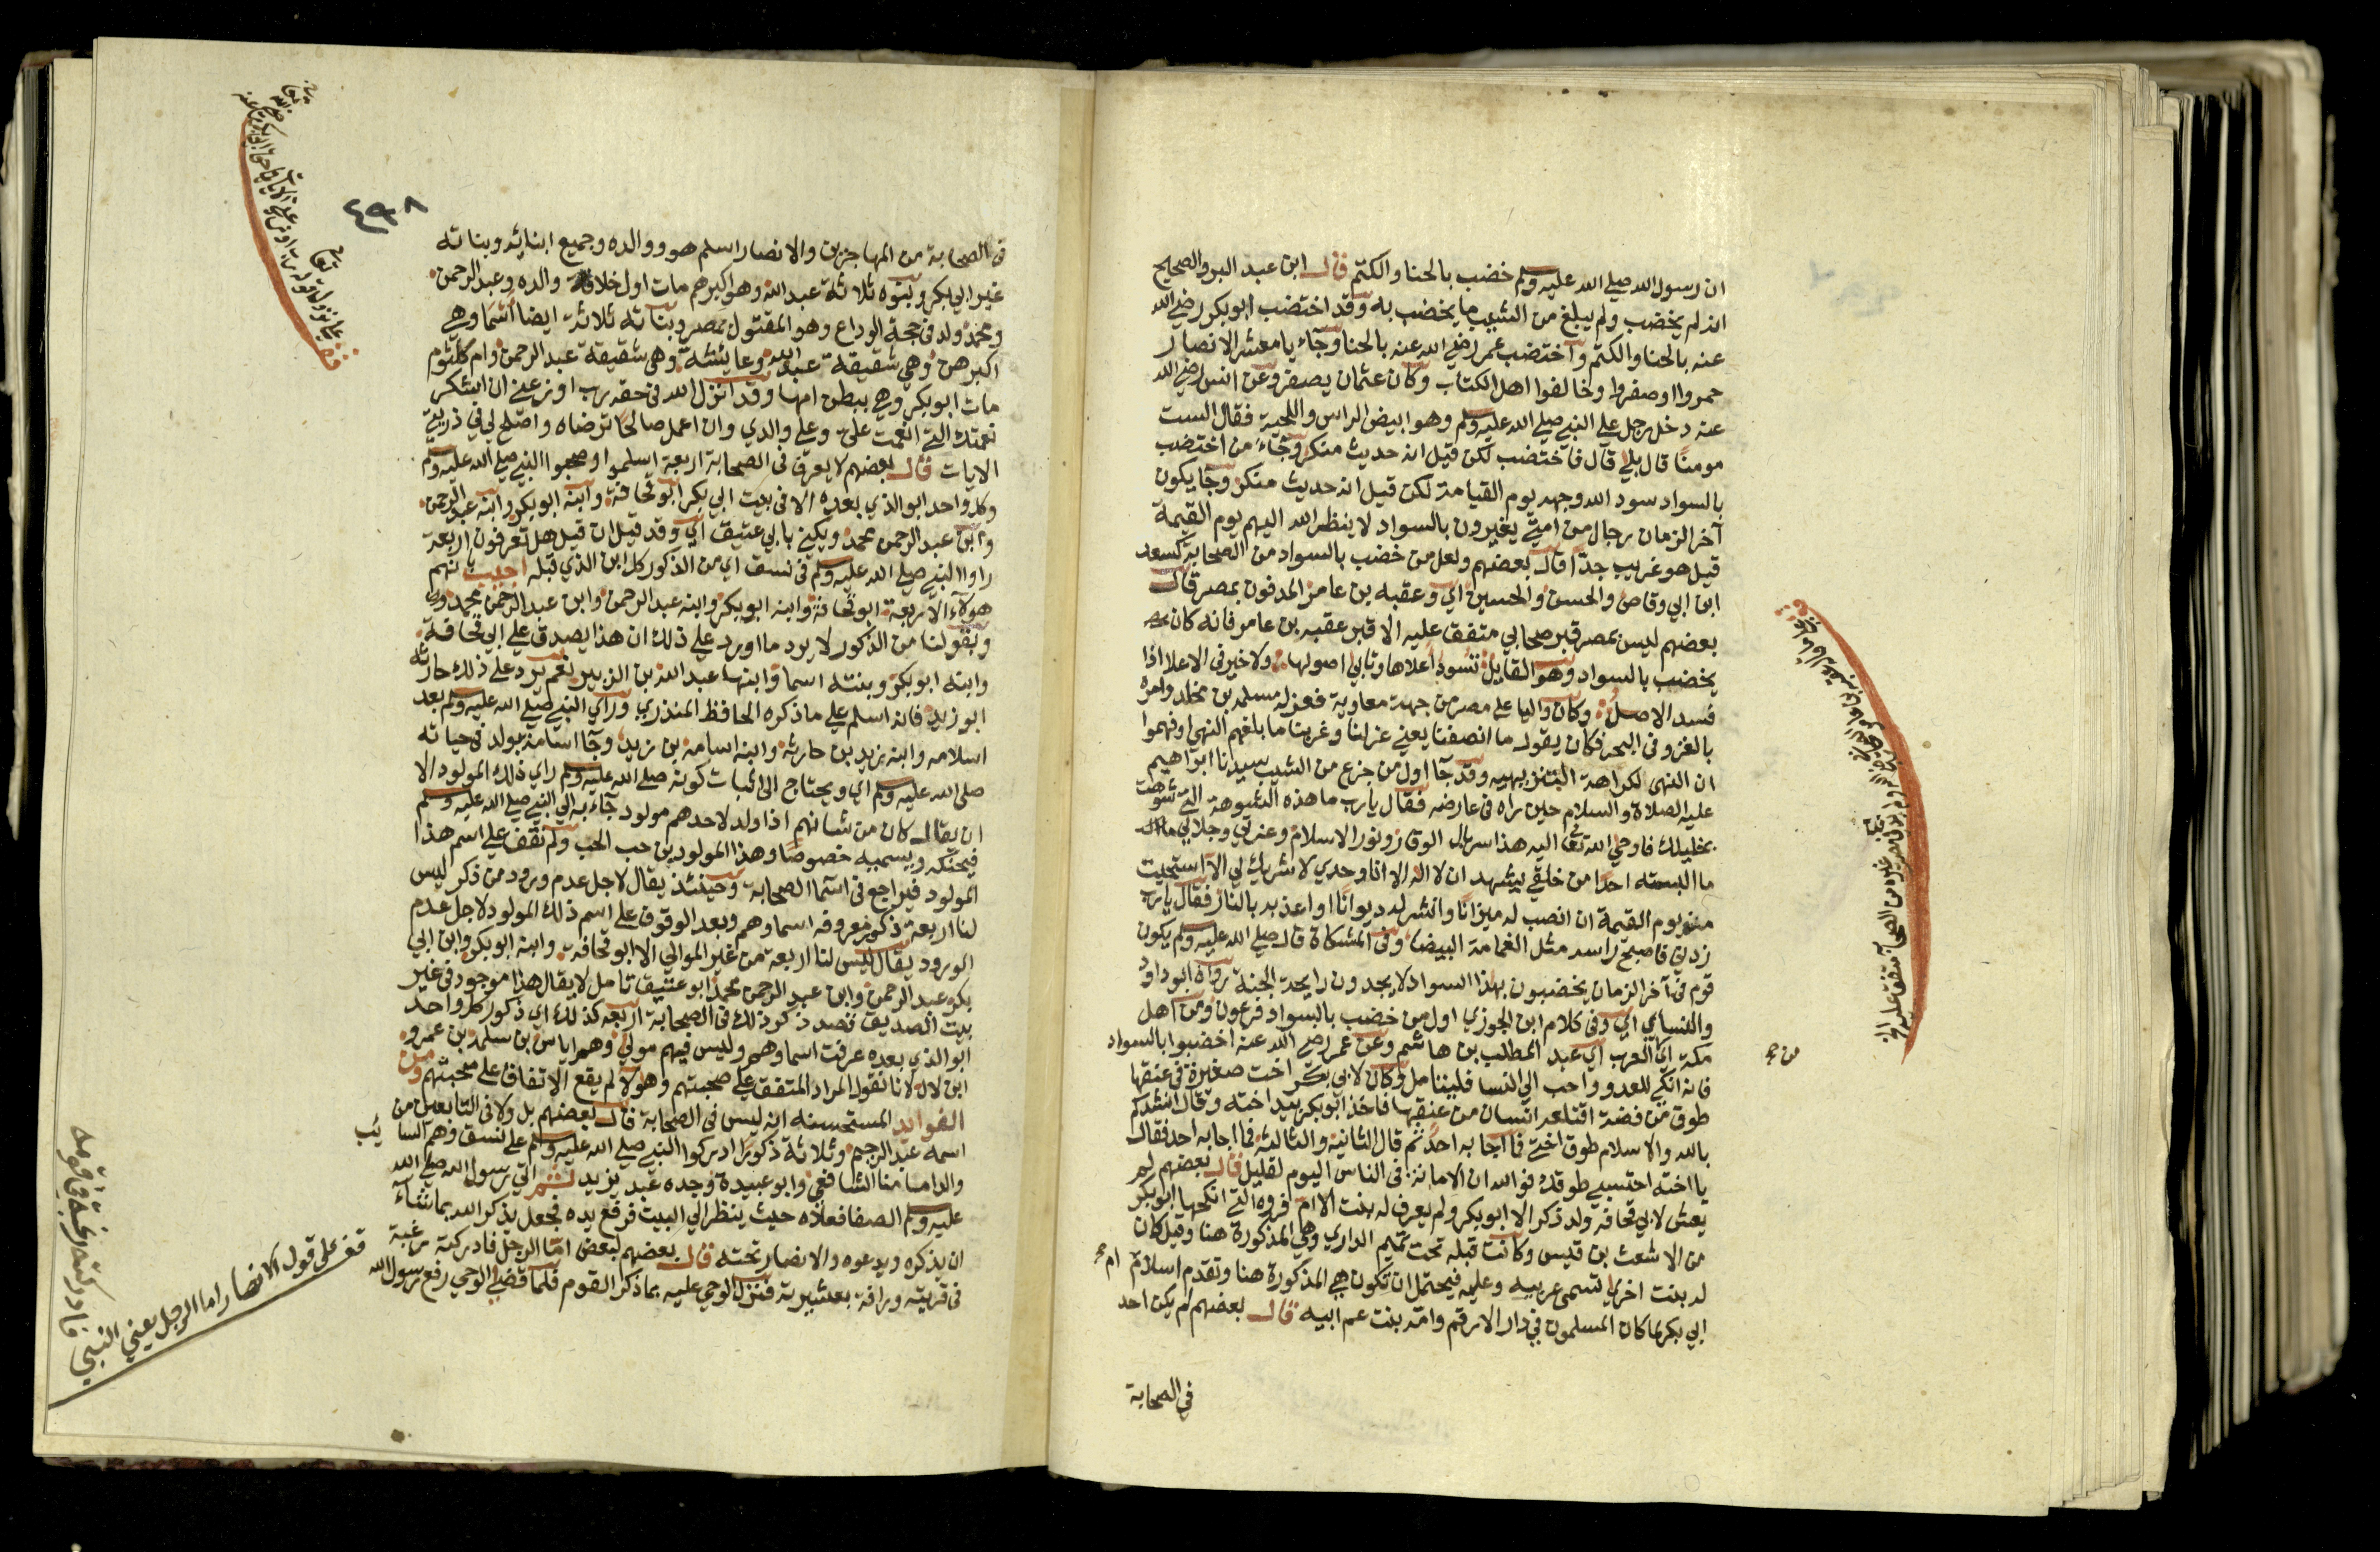 ان رسول الله صلي الله عليه وسلم خضب بالحنا والكتم قال ابن عبد البر والصحيح
انه لم يخضب ولم يبلغ من الشيب ما يخضب به وقد اختضب ابو بكر رضي الله
عنه بالحنا والكتم واختضب عمر رضي الله عنه بالحنا وجآء يا معشر الانصار
حمروا او صفروا وخالفوا اهل الكتاب وكان عثمان يصفر وعن انس رضي الله
عنه دخل رجل علي النبي صلي الله عليه وسلم وهو ابيض الراس واللحية فقال الست
مومنا قال بلي قال فاختضب لكن قيل انه حديث منكر وجآء من اختضب
بالسواد سود الله وجهه يوم القيامة لكن قيل انه حديث منكر وجا يكون
آخر الزمان رجال من امتي يغيرون بالسواد لا ينظر الله اليهم يوم القيمة
قيل هو غريب جدا قال بعضهم ولعل من خضب بالسواد من الصحابة كسعد
ابن ابي وقاص والحسن والحسين اي وعقبه بن عامر المدفون بمصر قال
بعضهم ليس بمصر قبر صحابي متفق عليه الا قبر عقبه بن عامر فانه كان
يخضب بالسواد وهو القايل نسود اعلاها وتابي اصولها ولا خير في الاعلا اذا
فسد الاصل وكان واليا علي مصر من جهة معاوية فعزله بمسلمه بن مخلد وامره
بالغزو في البحر فكان يقول ما انصفنا يعني عزلنا وغربنا ما بلغهم النهي او فهموا
ان النهي لكراهة التنزيهيه وقد جآ اول من جزع من الشيب سيدنا ابراهيم
عليه الصلاة والسلام حين راه في عارضه فقال يا رب ما هذه الشوهة التي شوهت
بخليلك فاوحي الله تعا اليه هذا سربال الوقار ونور الاسلام وعزتي وجلالي
ما البسته احدا من خلقي يشهد ان لا اله الا انا وحدي لا شريك لي الا استحييت
منه يوم القيمة ان انصب له ميزانا وانشر له ديوانا او اعذبه بالنار فقال يا رب
زدني فاصبح راسه مثل الثغامة البيضا وفي المشكاة قال صلي الله عليه وسلم يكون
قوم في آخر الزمان يخضبون بهذا السواد لا يجدون رايحة الجنة رواه ابو داود
والنسآي اي وفي كلام ابن الجوزي اول من خضب بالسواد فرعون ومن اهل
مكة اي العرب اي عبد المطلب بن هاشم وعن عمر رضي الله عنه اخضبوا بالسواد
فانه انكي للعدو واحب الي النسا فليتامل وكان لابي بكر اخت صغيرة في عنقها
طوق من فضة اقتلعه انسان من عنقها فاخذ ابو بكر بيد اخته وقال انشدكم
بالله والاسلام طوق اختي فما اجابه احد ثم قال الثانية والثالثة فما اجابه احد فقال
يا اخته احتسبي طوقك فوالله ان الامانة في الناس اليوم لقليل قال بعضهم لم
يعش لابي قحافة ولد ذكر الا ابو بكر ولم يعرف له بنت الا ام فروه التي انكحها ابو بكر
من الاشعث بن قيس وكانت قبله تحت تميم الداري وهي المذكورة هنا وقيل كان
له بنت اخري تسمي عريبه وعليه فيحتمل ان تكون هي المذكورة هنا وتقدم اسلام ام
ابي بكر لما كان المسلمون في دار الارقم وامه بنت عم ابيه قال بعضهم لم يكن احد
في الصحابة
٤٩٨
في الصحابة من المهاجرين والانصار اسلم هو ووالده وجميع ابنائه وبناته
غير ابي بكر وبنوه ثلاثة عبد الله وهو اكبرهم مات اول خلافة والده وعبد الرحمن
ومحمد ولد في حجة الوداع وهو المقتول بمصر وبناته ثلاثة ايضا اسما وهي
اكبرهن وهي شقيقة عبد الله وعايشة وهي شقيقة عبد الرحمن وام كلثوم
مات ابو بكر وهي ببطن امها وقد انزل الله في حقه رب اوزعني ان اشكر
نعمتك التي انعمت علي وعلي والدي وان اعمل صالحا ترضاه واصلح لي في ذريتي
الايات قال بعضهم لا يعرف في الصحابة اربعة اسلموا وصحبوا النبي صلي الله عليه وسلم
وكل واحد ابو الذي بعده الا في بيت ابي بكر ابو قحافة وابنه ابو بكر وابنه عبد الرحمن
وابن عبد الرحمن محمد ويكني بابي عتيق اي وقد قيل ان قيل هل تعرفون اربعة
راوا النبي صلي الله عليه وسلم في نسق اي من الذكور كل ابن الذي قبله اجيب بانهم
هولآء الاربعة ابو قحافة وابنه ابو بكر وابنه عبد الرحمن وابن عبد الرحمن محمد
وبقولنا من الذكور لا يرد ما اورد علي ذلك ان هذا يصدق علي ابي قحافة
وابنه ابو بكر وبنته اسما وابنها عبد الله بن الزبير نعم يرد علي ذلك حارثة
ابو زيد فانه اسلم علي ما ذكره الحافظ المنذري وراي النبي صلي الله عليه وسلم بعد
اسلامه وابنه زيد بن حارثة وابنه اسامة بن زيد وجآ اسامة بولد في حياته
صلي الله عليه وسلم اي ويحتاج الي اثبات كونه صلي الله عليه وسلم راي ذلك المولود الا
ان يقال كان من شانهم اذا ولد لاحدهم مولود جآء به الي النبي صلي الله عليه وسلم
فيحنكه ويسميه خصوصا وهذا المولود بن حب الحب ولم نقف علي اسم هذا
المولود فيراجع في اسما الصحابة وحينئذ يقال لاجل عدم ورود من ذكر ليس
لنا اربعة ذكور معروفه اسماوهم وبعد الوقوف علي اسم ذلك المولود لاجل عدم
الورود يقال ليس لنا اربعة من غير الموالي الا ابو قحافة وابنه ابو بكر وابن ابي
بكر عبد الرحمن وابن عبد الرحمن محمد ابو عتيق تامل لا يقال هذا موجود في غير
بيت الصديق فقد ذكر ذلك في الصحابة اربعة كذلك اي ذكور كل واحد
ابو الذي بعده عرفت اسماوهم وليس فيهم مولي وهم اياس بن سلمة بن عمرو
ابن لال لانا نقول المراد المتفق علي صحبتهم وهولآ لم يقع الاتفاق علي صحبتهم ومن
الفوايد المستحسنه انه ليس في الصحابة قال بعضهم بل ولا في التابعين من
اسمه عبد الرحيم وثلاثة ذكور ادركوا النبي صلي الله عليه وسلم علي نسق وهم السايب
والد امامنا الشافعي وابو عبيدة وجده عبد يزيد ثم اتي رسول الله صلي الله
عليه وسلم الصفا فعلاه حيث ينظر الي البيت فرفع يده فجعل يذكر الله بما شآء
ان يذكره ويدعوه والانصار تحته قال بعضهم لبعض اما الرجل فادركته رغبة
في قريته ورافة بعشيرته فنزل الوحي عليه بما ذكر القوم فلما قضي الوحي رفع رسول الله
قف علي قول الانصار اما الرجل يعني النبي
فادركته رغبة في قومه